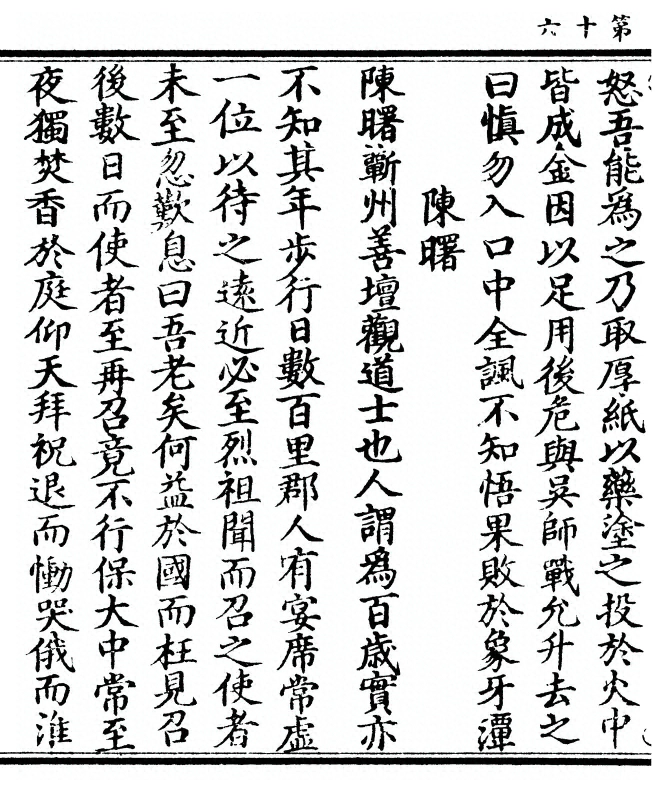 第十六
怒吾能爲之乃取厚紙以藥塗之投於火中
皆成金因以足用後危與吳師戰允升去之
曰愼勿入口中全諷不知悟果敗於象牙潭
陳曙
陳曙蘄州善壇觀道士也人謂爲百歲實亦
不知其年步行日數百里郡人有宴席常虛
一位以待之遠近必至烈祖聞而召之使者
未至忽歎息曰吾老矣何益於國而枉見召
後數日而使者至再召竟不行保大中常至
夜獨焚香於庭仰天拜祝退而慟哭俄而淮